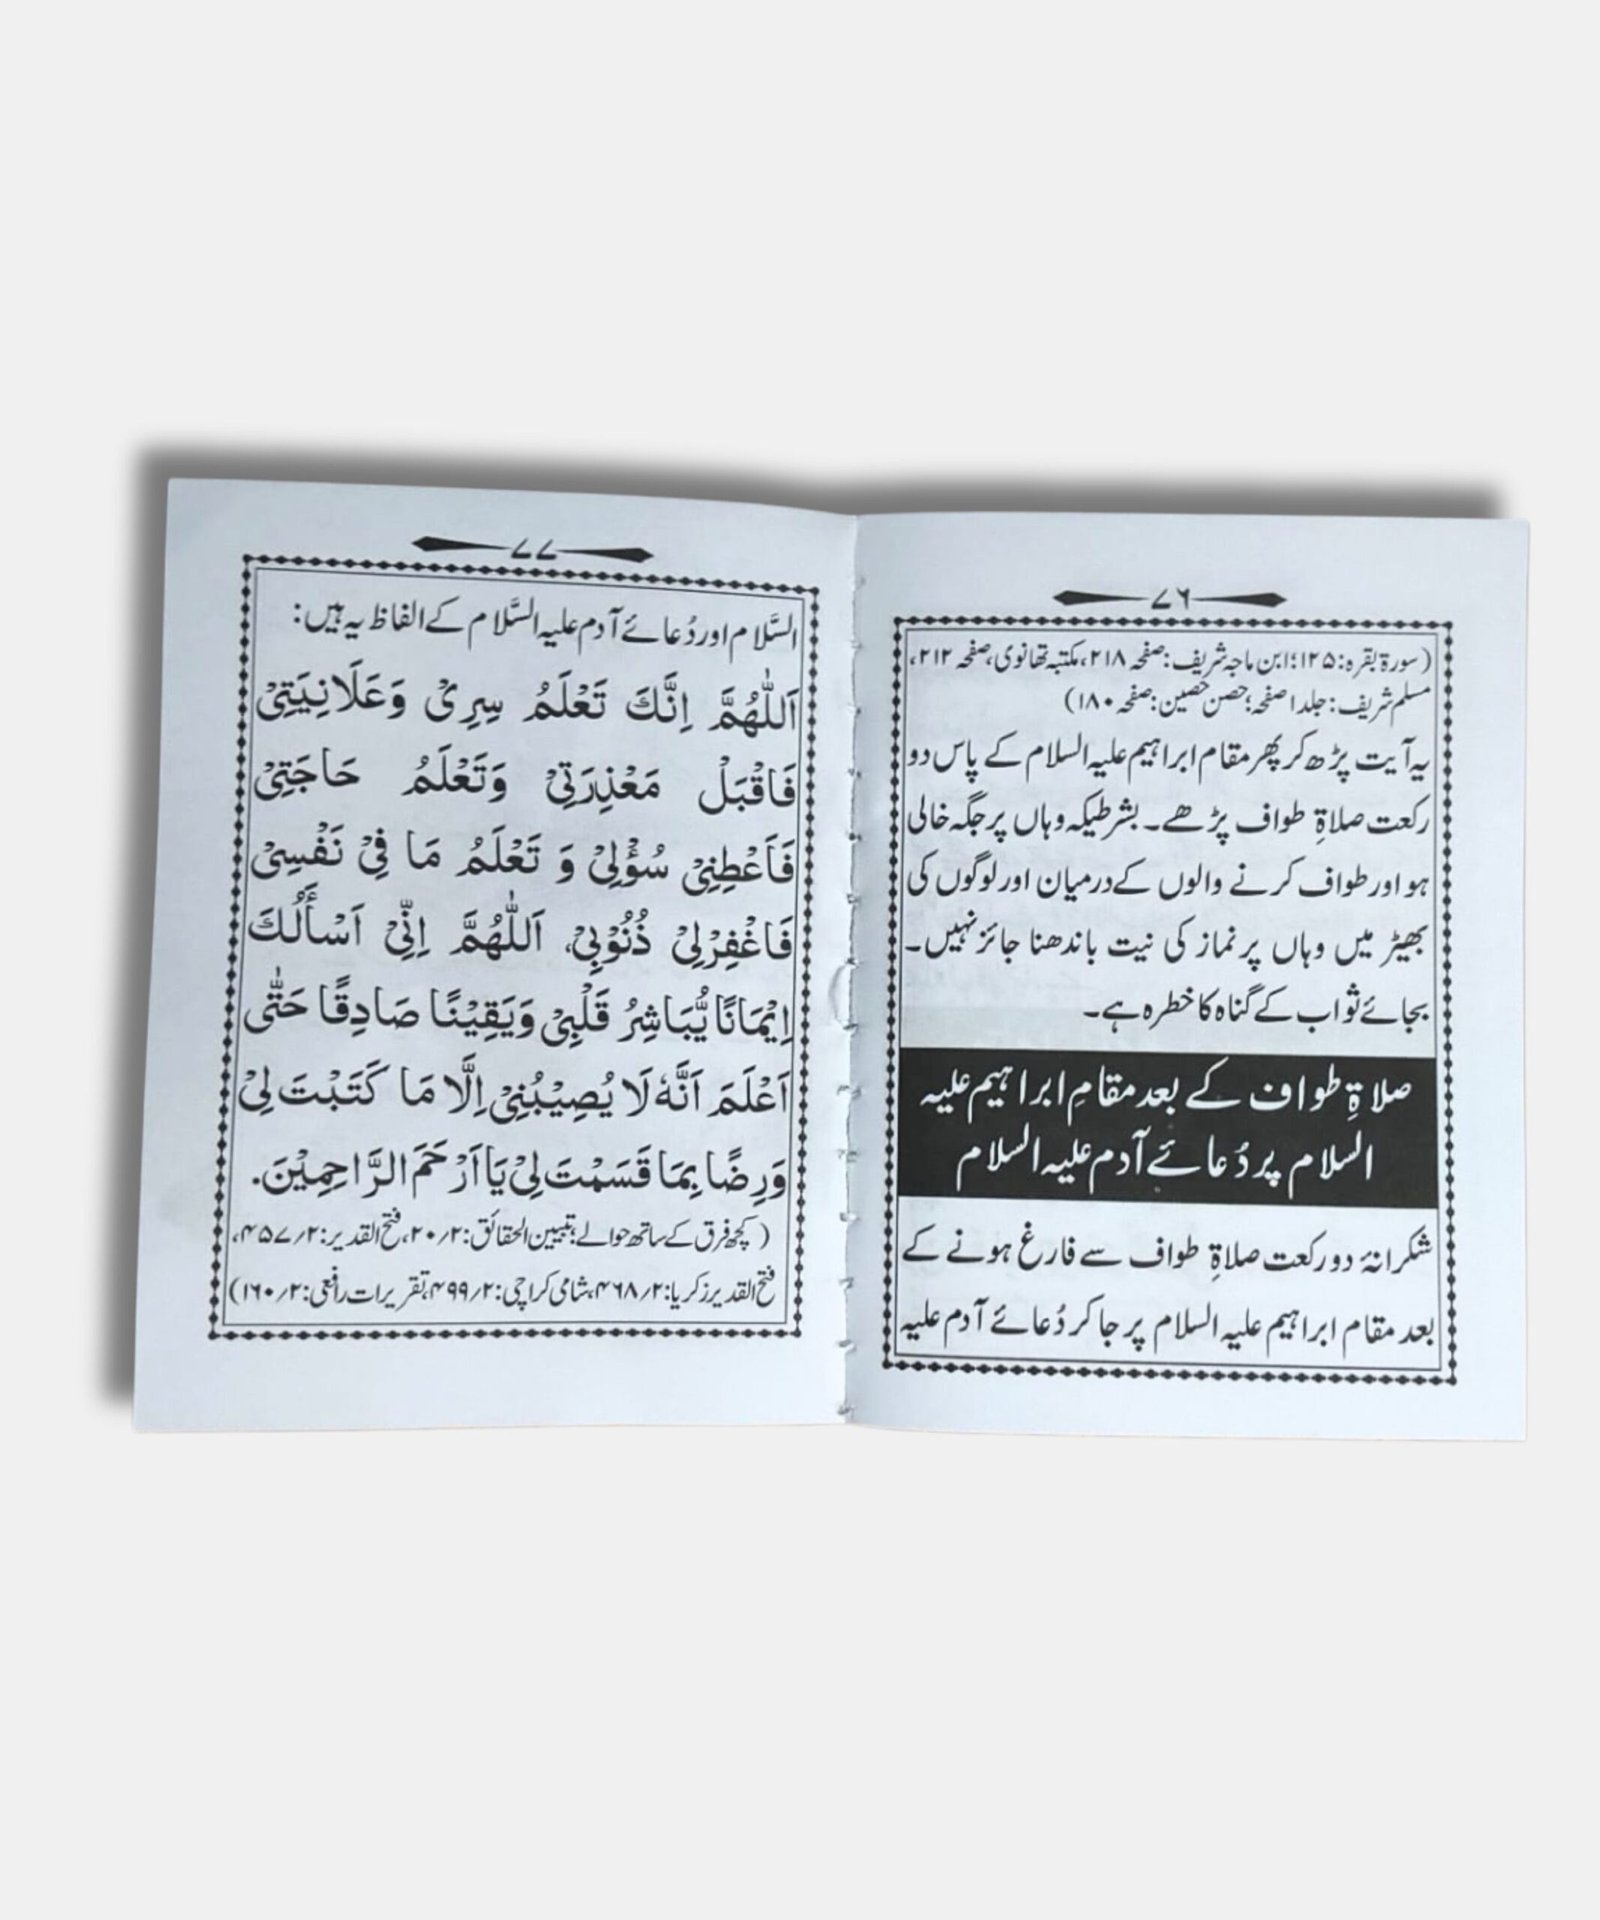 ۷۶
(سورۃ بقرہ: ۱۲۵؛ ابن ماجہ شریف: صفحہ ۲۱۸، مکتبہ تھانوی، صفحہ ۲۱۲،
مسلم شریف: جلد ۱ صفحہ؛ حصن حصین: صفحہ ۱۸۰)
یہ آیت پڑھ کر پھر مقام ابراہیم علیہ السلام کے پاس دو
رکعت صلاۃِ طواف پڑھے۔ بشرطیکہ وہاں پر جگہ خالی
ہو اور طواف کرنے والوں کے درمیان اور لوگوں کی
بھیڑ میں وہاں پر نماز کی نیت باندھنا جائز نہیں۔
بجائے ثواب کے گناہ کا خطرہ ہے۔
صلاۃِ طواف کے بعد مقامِ ابراہیم علیہ
السلام پر دُعائے آدم علیہ السلام
شکرانۂ دو رکعت صلاۃِ طواف سے فارغ ہونے کے
بعد مقام ابراہیم علیہ السلام پر جا کر دُعائے آدم علیہ
۷۷
السَّلام اور دُعائے آدم علیہ السَّلام کے الفاظ یہ ہیں:
اَللّٰهُمَّ اِنَّكَ تَعْلَمُ سِرِیْ وَعَلَانِيَتِیْ
فَاقْبَلْ مَعْذِرَتِیْ وَتَعْلَمُ حَاجَتِیْ
فَاَعْطِنِیْ سُؤْلِیْ وَ تَعْلَمُ مَا فِیْ نَفْسِیْ
فَاغْفِرْلِیْ ذُنُوْبِیْ، اَللّٰهُمَّ اِنِّیْ اَسْأَلُكَ
اِيْمَانًا يُّبَاشِرُ قَلْبِیْ وَيَقِيْنًا صَادِقًا حَتّٰی
اَعْلَمَ اَنَّهٗ لَا يُصِيْبُنِیْ اِلَّا مَا كَتَبْتَ لِیْ
وَرِضًا بِمَا قَسَمْتَ لِیْ يَا اَرْحَمَ الرَّاحِمِيْنَ.
(کچھ فرق کے ساتھ حوالے؛ تبیین الحقائق: ۲/۲۰، فتح القدیر: ۲/۴۵۷،
فتح القدیر زکریا: ۲/۴۶۸، شامی کراچی: ۲/۴۹۹، تقریرات رافعی: ۲/۱۶۰)